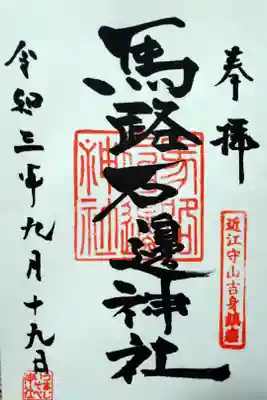 奉拝
近江守山古身鎮座
馬路石邊神社
令和三年九月十九日